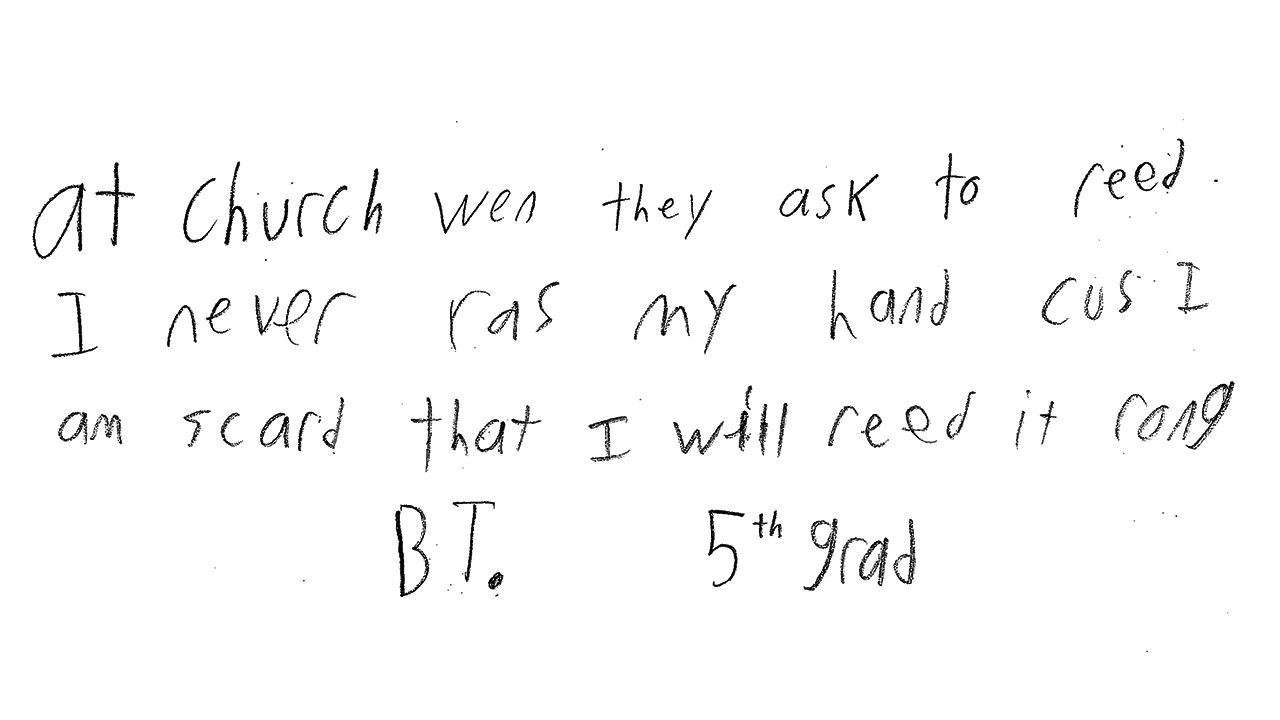 at church wen they ask to reed.
I never ras my hand cus I
am scard that I will reed it rong
B.T. 5th grad